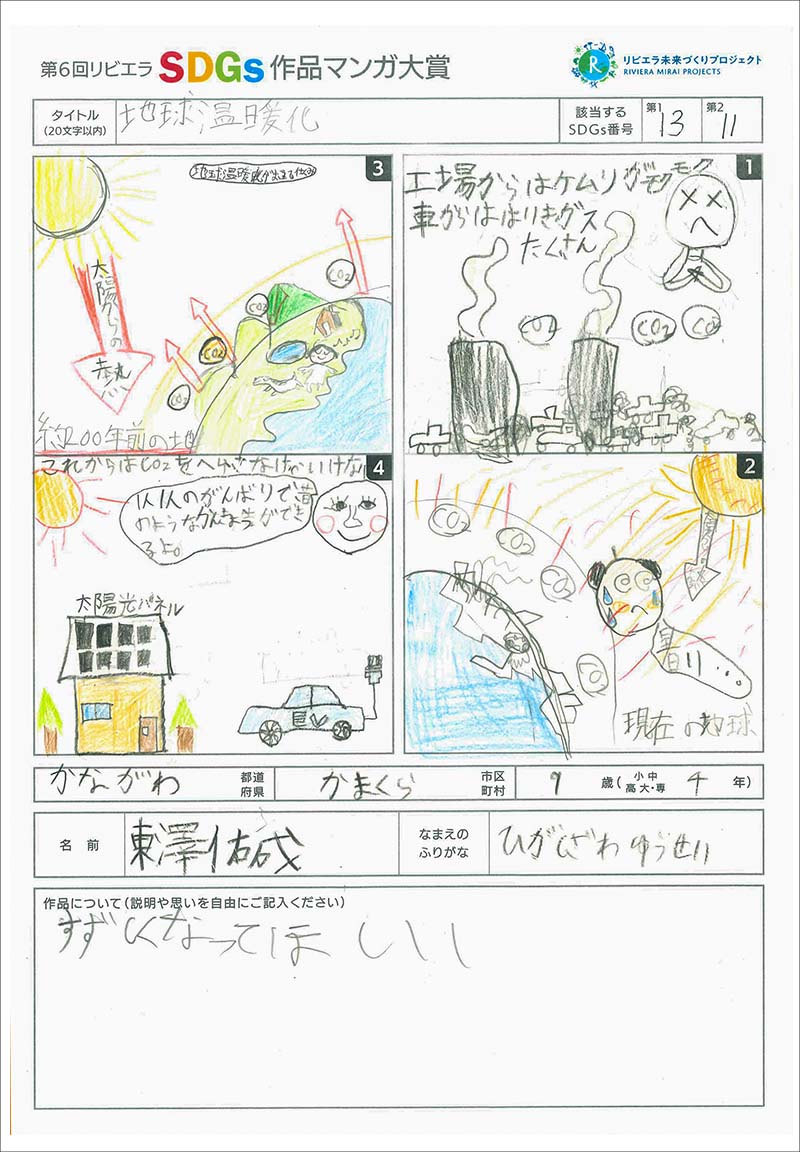 第6回リビエラ SDGs 作品マンガ大賞
リビエラ未来づくりプロジェクト
RIVIERA MIRAI PROJECTS
タイトル
(20文字以内)
地球温暖化
該当する
SDGs番号
第1
13
第2
11
1
工場からはケムリがモクモク
車からははいきガス
たくさん
CO2
CO2
CO2
2
CO2
CO2
CO2
CO2
太陽からの熱
暑い…
現在の地球
3
太陽からの
熱
CO2
CO2
CO2
CO2
約200年前の地
4
これからはCO2をへらさなければいけない
るよ。
太陽光パネル
EV
かながわ
都道
府県
かまくら
市区
町村
9
歳(
小 中
高 大・専
4
年)
名 前
東澤佑成
なまえの
ふりがな
ひがしざわ ゆうせい
作品について(説明や思いを自由にご記入ください)
すずしくなってほしい